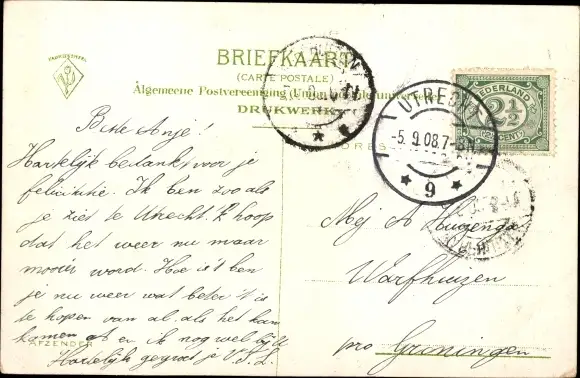 FABRIEKSMERK
BRIEFKAART
(CARTE POSTALE)
Algemeene Postvereeniging (Union postale universelle)
DRUKWERK
NEDERLAND
2½
CENT
UTRECHT
-5.9.08.7-8N
9
Beste Anje!
Hartelijk bedankt voor je
felicitatie. Ik ben zoo als
je ziet te Utrecht. 'k hoop
dat het weer nu maar
mooier word. Hoe is't ben
je nu weer wat beter 't is
te hopen van al als het kan
komen en ik nog wel bijll
AFZENDER
Hartelijk gegroet je
ADRES
Mej A Huizenga
Warfhuizen
pro Groningen